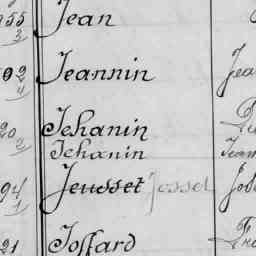 55 Jean
3
92 Jeannin Jea
4
20 Jehanin
2 Jehanin Jean
94 Jeusset Josset Jos
1
21 Joffard Fra